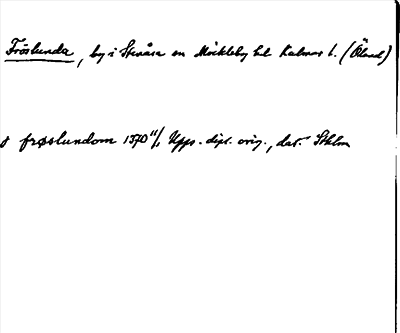 Fröslunda, by i Stenåsa sn Möckleby hd Kalmar l. (Öland)
j frøslundom 1370 11/1 Upps. dipl. orig., dat. Sthlm